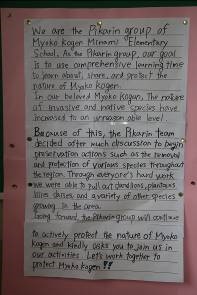 We are the Pikarin group of
Myoko Kogen Minami Elementary
School. As the Pikarin group, our goal
is to use comprehensive learning time
to learn about, share, and protect the
nature of Myoko Kogen.
In our beloved Myoko Kogen, The nature
of invasive and native species have
increased to an unreasonable level.
Because of this, the Pikarin team
decided after much discussion to begin
preservation actions such as the removal
and protection of various species throughout
the region. Through everyone's hard work
we were able to pull out dandilions, plantains,
lilies, daisies and a variety of other species
growing in the area.
Going forward, the Pikarin group will continue
to actively protect the nature of Myoko
Kogen and kindly asks you to join us in
our activities. Let's work together to
protect Myoko Kogen!!